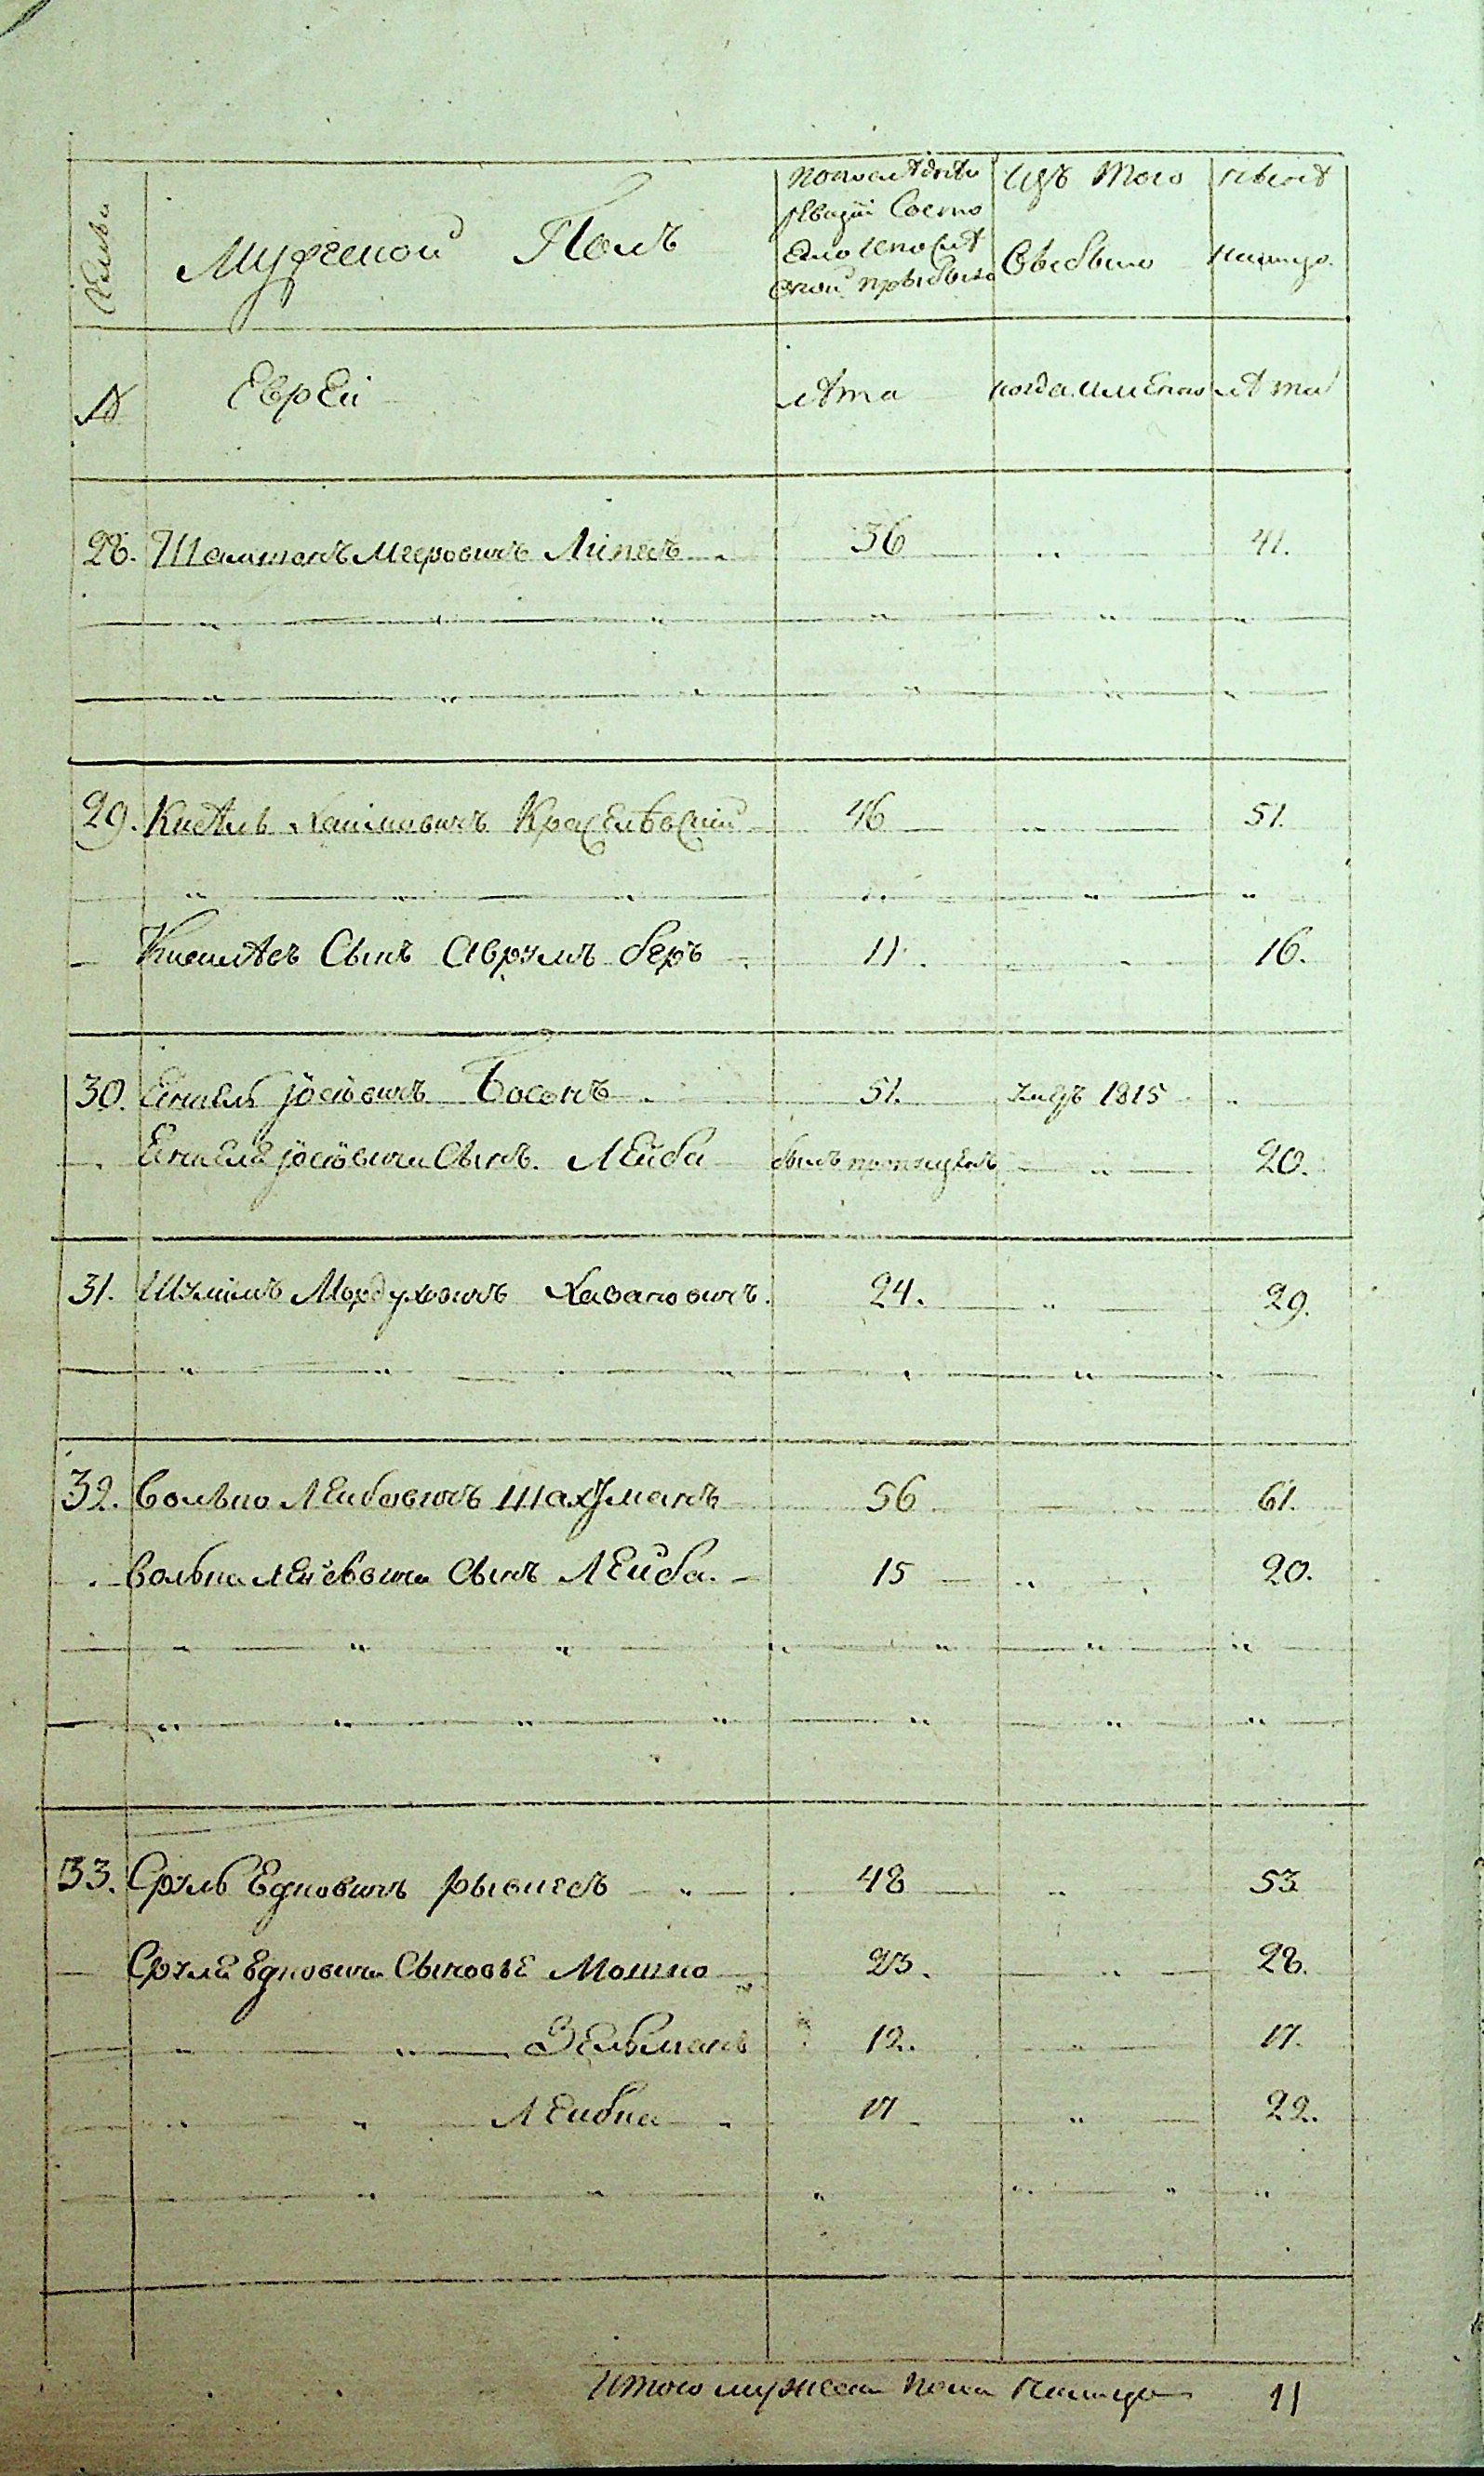 Мужеской Полъ
По последней
ревизии Состо
яло и после
оной прибыло
Изъ того
выбыло
ныне
на лицо
№
Евреи
лета
когда именно
лета
28. Шлиомъ Меровичъ Липекъ 36 41.
29. Киселъ Хаимовичъ Краселѣвский 46 51.
Киселевъ Сынъ Аврумъ беръ 11. 16.
30. Енкель Јосiовичъ Босонъ 51. умеръ 1815
Енкеля Јосiовича Сынъ Лейба былъ пропущенъ 20.
31. Шулимъ Мордуховичъ Хазановичъ. 24. 29.
32. Волько Лейбовичъ Шахманъ 56 61.
Волька Лейбовича Сынъ Лейба. 15 20.
33. Сруль Едковичъ Рывкесъ 48 53
Сруля Едковича Сыновье Мошко 23. 28.
Зельманъ 12. 17.
Лейбка 17 22.
Итого мужеска пола налицо 11